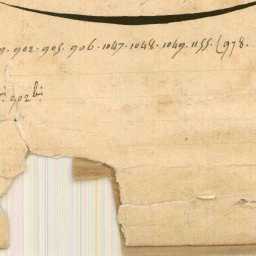 902. 905. 906. 1047. 1048. 1049. 1155. (978.
902